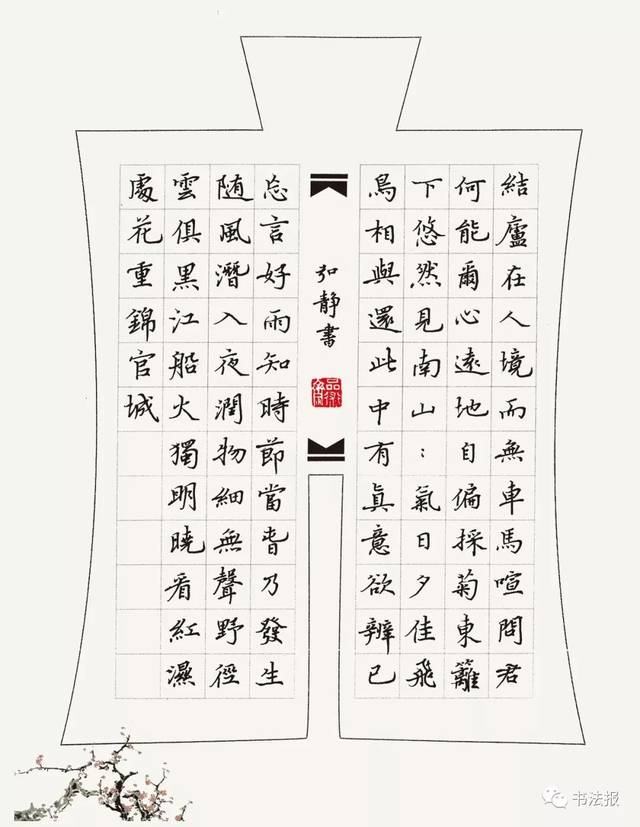 結廬在人境而無車馬喧問君
何能爾心遠地自偏採菊東籬
下悠然見南山：氣日夕佳飛
鳥相與還此中有眞意欲辨已
忘言好雨知時節當旾乃發生
随風潛入夜潤物細無聲野徑
雲俱黑江船火獨明曉看紅濕
處花重錦官城
弘静書
书法报